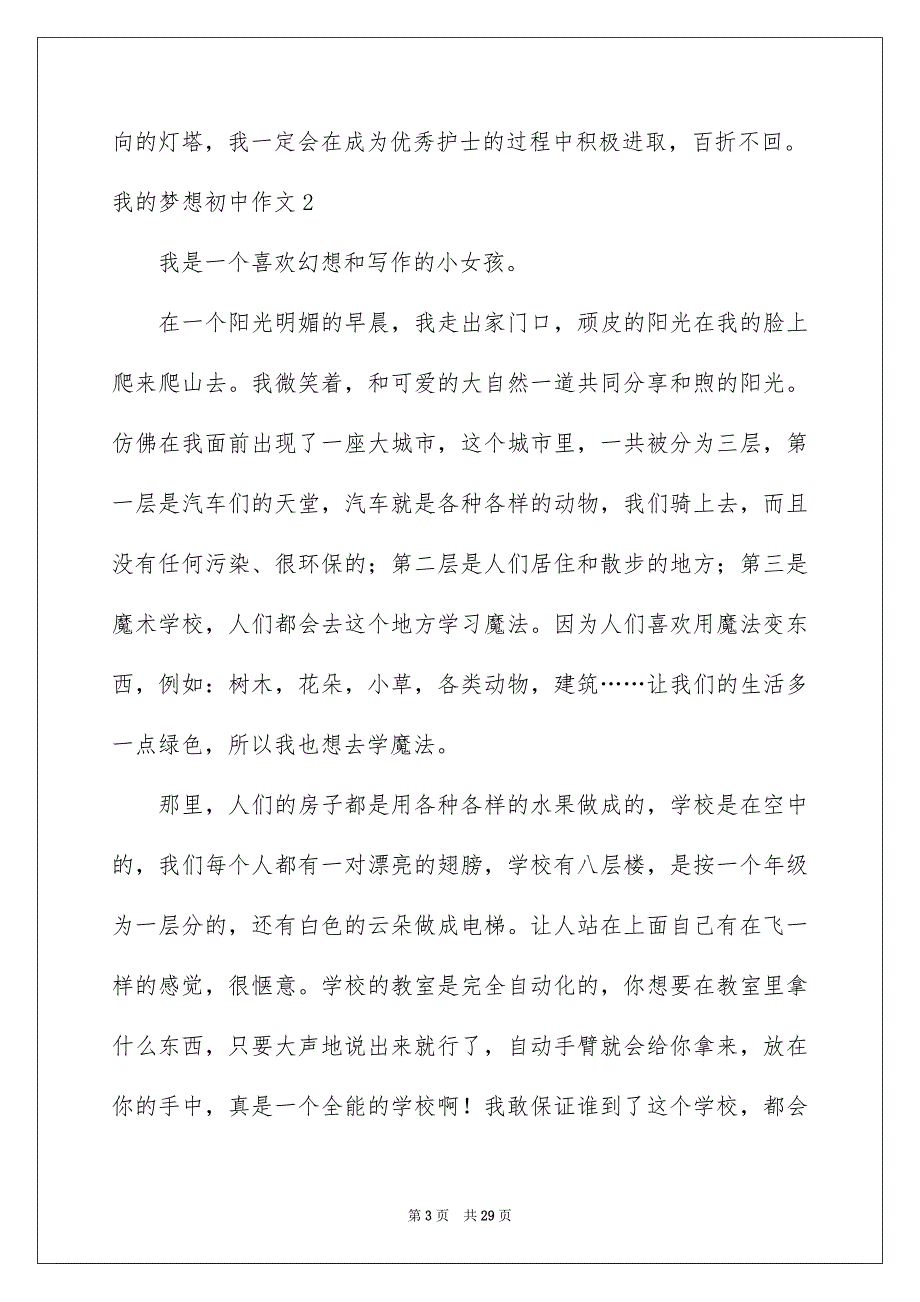 向的灯塔，我一定会在成为优秀护士的过程中积极进取，百折不回。
我的梦想初中作文 2
我是一个喜欢幻想和写作的小女孩。
在一个阳光明媚的早晨，我走出家门口，顽皮的阳光在我的脸上
爬来爬山去。我微笑着，和可爱的大自然一道共同分享和煦的阳光。
仿佛在我面前出现了一座大城市，这个城市里，一共被分为三层，第
一层是汽车们的天堂，汽车就是各种各样的动物，我们骑上去，而且
没有任何污染、很环保的；第二层是人们居住和散步的地方；第三是
魔术学校，人们都会去这个地方学习魔法。因为人们喜欢用魔法变东
西，例如：树木，花朵，小草，各类动物，建筑……让我们的生活多
一点绿色，所以我也想去学魔法。
那里，人们的房子都是用各种各样的水果做成的，学校是在空中
的，我们每个人都有一对漂亮的翅膀，学校有八层楼，是按一个年级
为一层分的，还有白色的云朵做成电梯。让人站在上面自己有在飞一
样的感觉，很惬意。学校的教室是完全自动化的，你想要在教室里拿
什么东西，只要大声地说出来就行了，自动手臂就会给你拿来，放在
你的手中，真是一个全能的学校啊！我敢保证谁到了这个学校，都会
第 3 页 共 29 页